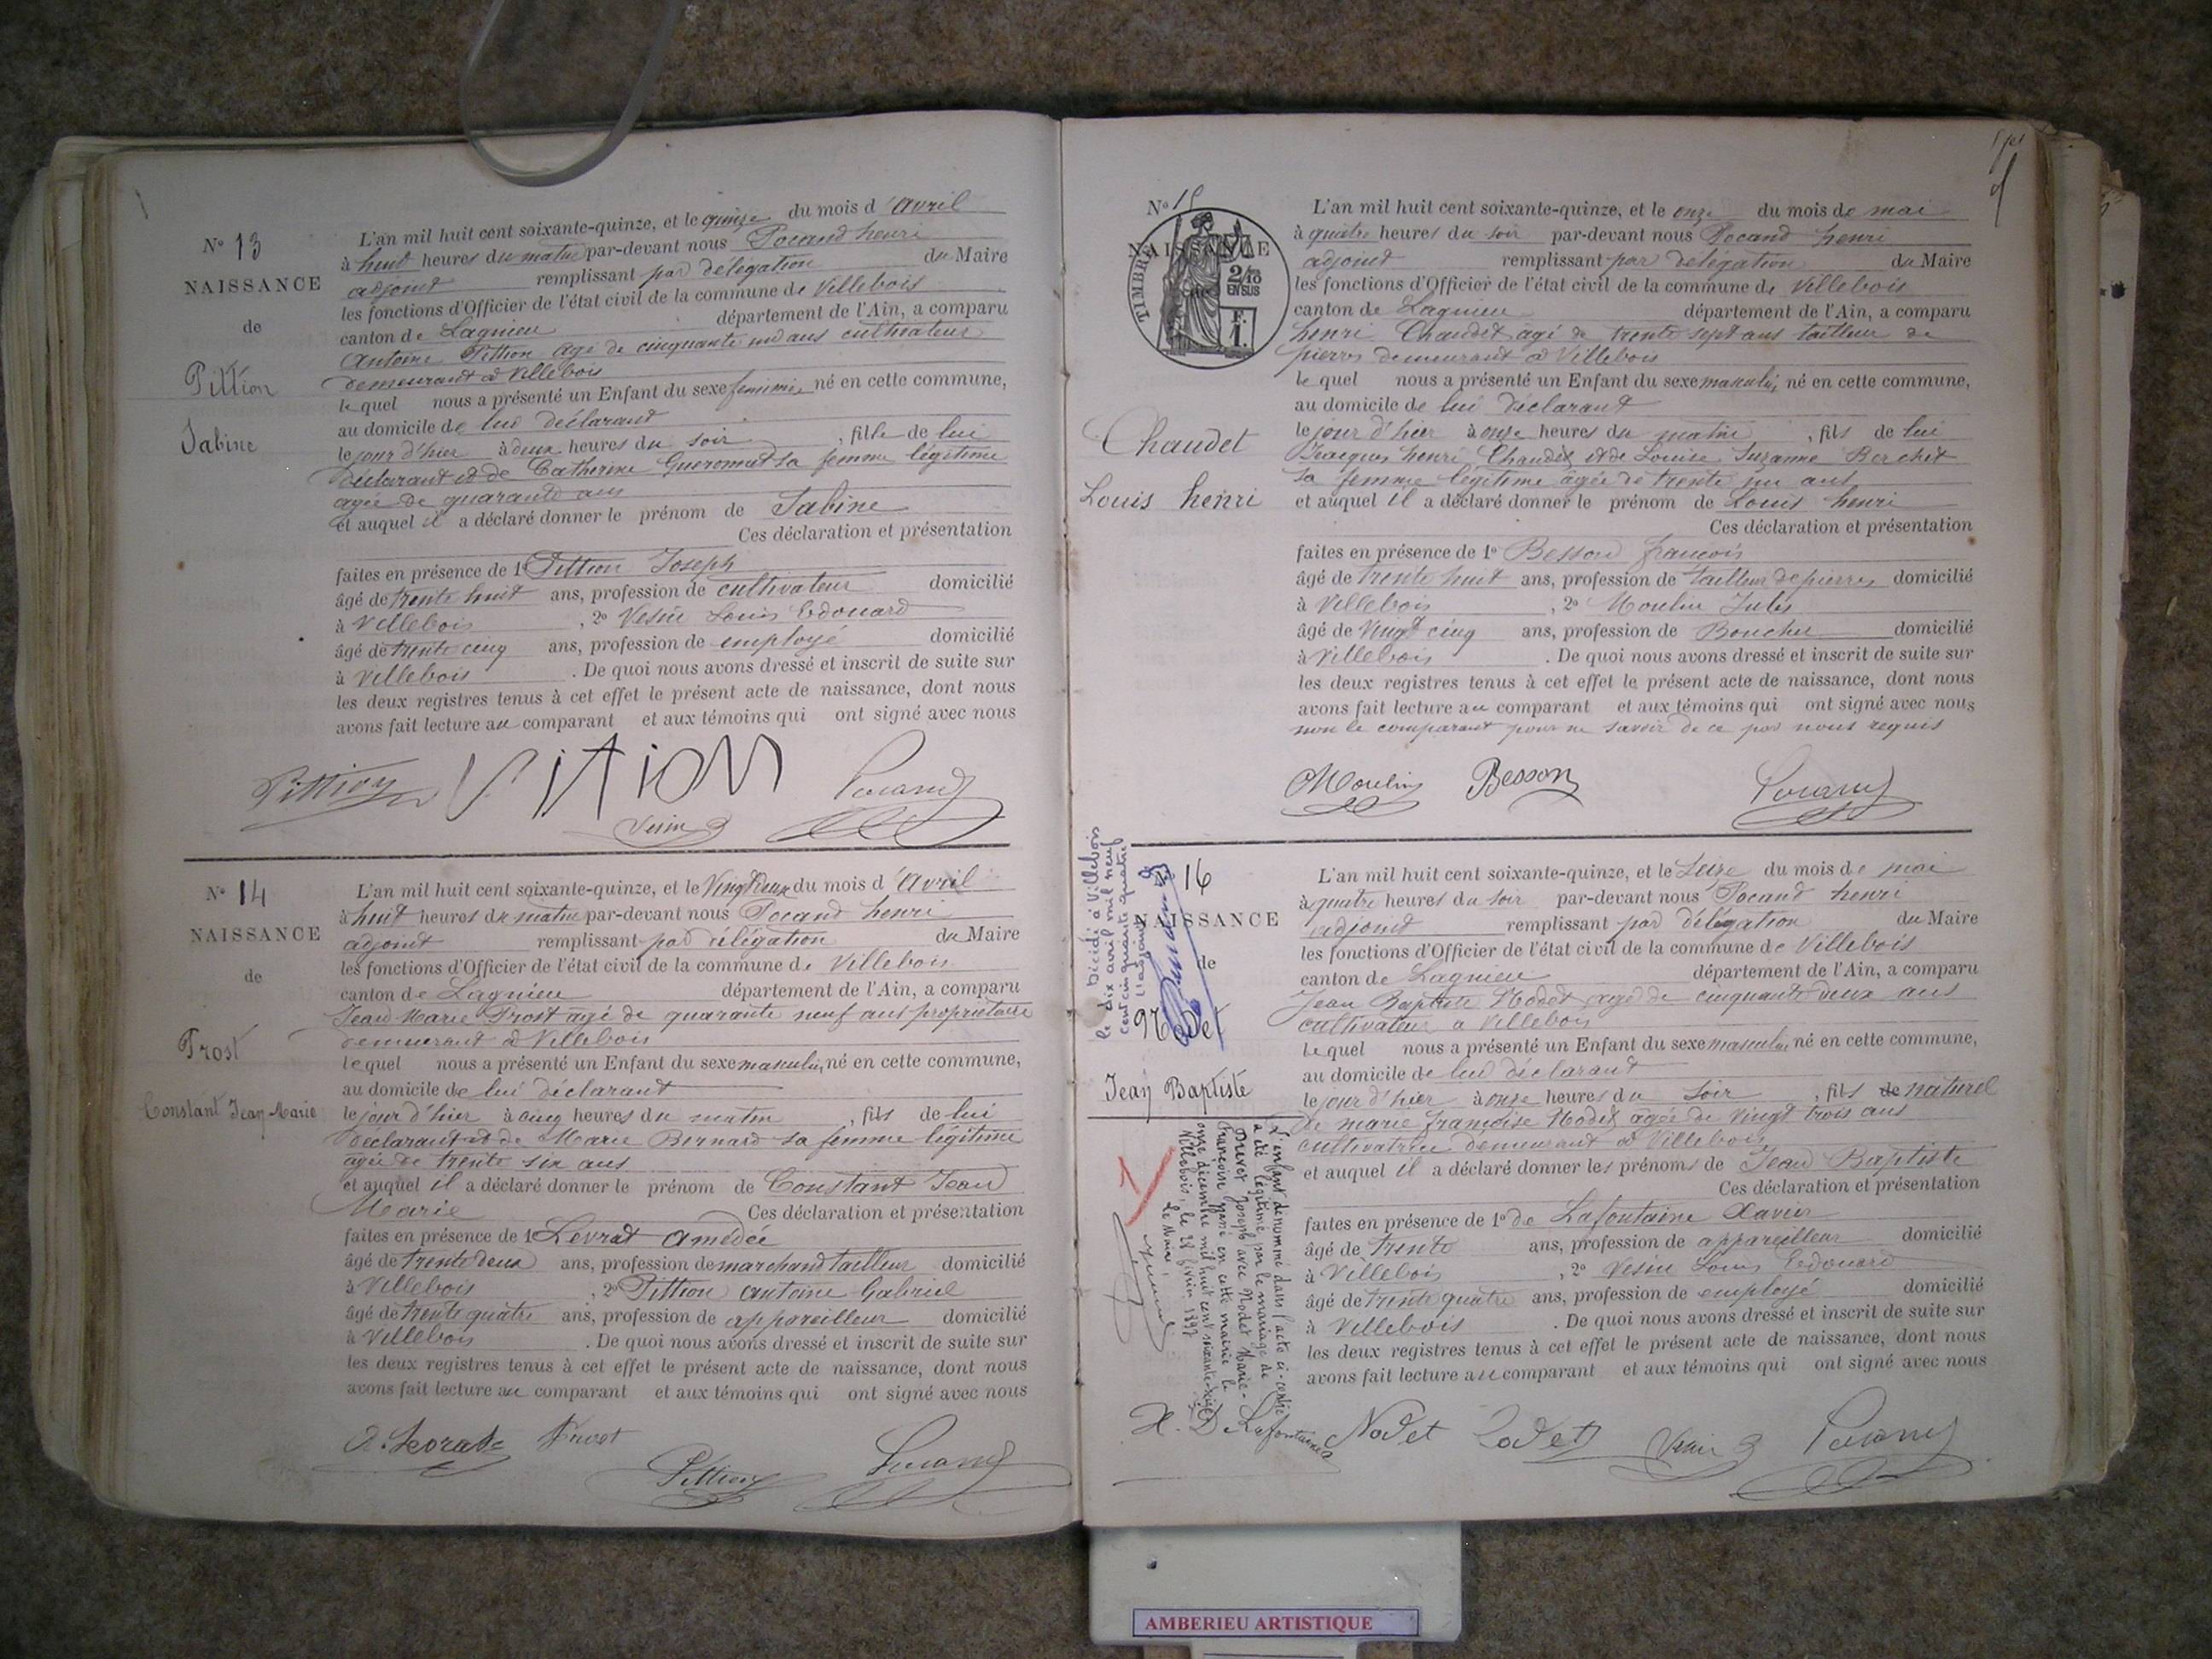 N° 13
NAISSANCE
de
Pittion
Sabine
L'an mil huit cent soixante-quinze, et le quinze du mois d'avril
à huit heures du matin par-devant nous Pocand henri
adjoint remplissant par délégation du Maire
les fonctions d'Officier de l'état civil de la commune de Villebois
canton de Lagnieu département de l'Ain, a comparu
Antoine Pittion agé de cinquante un ans cultivateur
demeurant à Villebois
lequel nous a présenté un Enfant du sexe feminin, né en cette commune,
au domicile de lui déclarant
le jour d'hier à deux heures du soir, fille de lui
Déclarant et de Catherine sa femme légitime
agée de quarante ans
et auquel il a déclaré donner le prénom de Sabine
Ces déclaration et présentation
faites en présence de 1° Pittion Joseph
âgé de trente huit ans, profession de cultivateur domicilié
à Villebois, 2° Vesin Louis Edouard
âgé de trente cinq ans, profession de employé domicilié
à Villebois. De quoi nous avons dressé et inscrit de suite sur
les deux registres tenus à cet effet le présent acte de naissance, dont nous
avons fait lecture au comparant et aux témoins qui ont signé avec nous
Pittion Pocand
Vesin
N° 14
NAISSANCE
de
Prost
Constant Jean Marie
L'an mil huit cent soixante-quinze, et le Vingt deux du mois d'Avril
à huit heures du matin par-devant nous Pocand henri
adjoint remplissant par délégation du Maire
les fonctions d'Officier de l'état civil de la commune de Villebois
canton de Lagnieu département de l'Ain, a comparu
Jean Marie Prost agé de quarante neuf ans propriétaire
demeurant à Villebois
lequel nous a présenté un Enfant du sexe masculin, né en cette commune,
au domicile de lui déclarant
le jour d'hier à cinq heures du matin, fils de lui
Déclarant et de Marie Bernard sa femme légitime
agée de trente six ans
et auquel il a déclaré donner le prénom de Constant Jean
Marie Ces déclaration et présentation
faites en présence de 1° Levrat Amédée
âgé de trente deux ans, profession de marchand tailleur domicilié
à Villebois, 2° Pittion Antoine Gabriel
âgé de trente quatre ans, profession de appareilleur domicilié
à Villebois. De quoi nous avons dressé et inscrit de suite sur
les deux registres tenus à cet effet le présent acte de naissance, dont nous
avons fait lecture au comparant et aux témoins qui ont signé avec nous
A. Levrat Prost
Pittion Pocand
N° 15
NAISSANCE
TIMBRE
2/10
EN SUS
F.
1.
Chaudet
Louis henri
L'an mil huit cent soixante-quinze, et le onze du mois de mai
à quatre heures du soir par-devant nous Pocand henri
adjoint remplissant par délégation du Maire
les fonctions d'Officier de l'état civil de la commune de Villebois
canton de Lagnieu département de l'Ain, a comparu
henri Chaudet agé de trente sept ans tailleur de
pierres demeurant à Villebois
lequel nous a présenté un Enfant du sexe masculin, né en cette commune,
au domicile de lui déclarant
le jour d'hier à onze heures du matin, fils de lui
Jacques henri Chaudet et de Louise Suzanne Berchet
sa femme légitime agée de trente un ans
et auquel il a déclaré donner le prénom de Louis henri
Ces déclaration et présentation
faites en présence de 1° Besson françois
âgé de trente huit ans, profession de tailleur de pierres domicilié
à Villebois, 2° Moulin Jules
âgé de Vingt cinq ans, profession de Boucher domicilié
à Villebois. De quoi nous avons dressé et inscrit de suite sur
les deux registres tenus à cet effet le présent acte de naissance, dont nous
avons fait lecture au comparant et aux témoins qui ont signé avec nous
non le comparant pour ne savoir de ce par nous requis
Moulin Besson Pocand
16
NAISSANCE
de
Nodet
Jean Baptiste
Décédé à Villebois
le dix avril mil neuf
cent cinquante quatre
L'an mil huit cent soixante-quinze, et le Seize du mois de mai
à quatre heures du soir par-devant nous Pocand henri
adjoint remplissant par délégation du Maire
les fonctions d'Officier de l'état civil de la commune de Villebois
canton de Lagnieu département de l'Ain, a comparu
Jean Baptiste Nodet agé de cinquante deux ans
cultivateur a Villebois
lequel nous a présenté un Enfant du sexe masculin, né en cette commune,
au domicile de lui déclarant
le jour d'hier à onze heures du soir, fils de naturel
de marie françoise Nodet agée de vingt trois ans
cultivatrice demeurant à Villebois
et auquel il a déclaré donner les prénoms de Jean Baptiste
Ces déclaration et présentation
faites en présence de 1° de Lafontaine Xavier
âgé de trente ans, profession de appareilleur domicilié
à Villebois, 2° Vesin Louis Edouard
âgé de trente quatre ans, profession de employé domicilié
à Villebois. De quoi nous avons dressé et inscrit de suite sur
les deux registres tenus à cet effet le présent acte de naissance, dont nous
avons fait lecture au comparant et aux témoins qui ont signé avec nous
L'enfant dénommé dans l'acte ci-contre
a été légitimé par le mariage de
Drevet Joseph avec Nodet Marie-
Françoise passé en cette mairie le
onze décembre mil huit cent soixante-seize
Villebois, le 28 février 1897
Le Maire,
X. De Lafontaine Nodet Nodet Vesin Pocand
AMBERIEU ARTISTIQUE